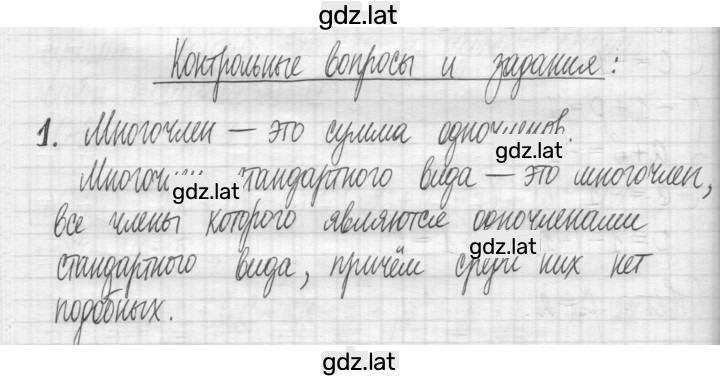 gdz.lat
Контрольные вопросы и задания:
1. Многочлен — это сумма одночленов.
gdz.lat
Многочлен стандартного вида — это многочлен,
gdz.lat
все члены которого являются одночленами
gdz.lat
стандартного вида, причём среди них нет
подобных.
gdz.lat